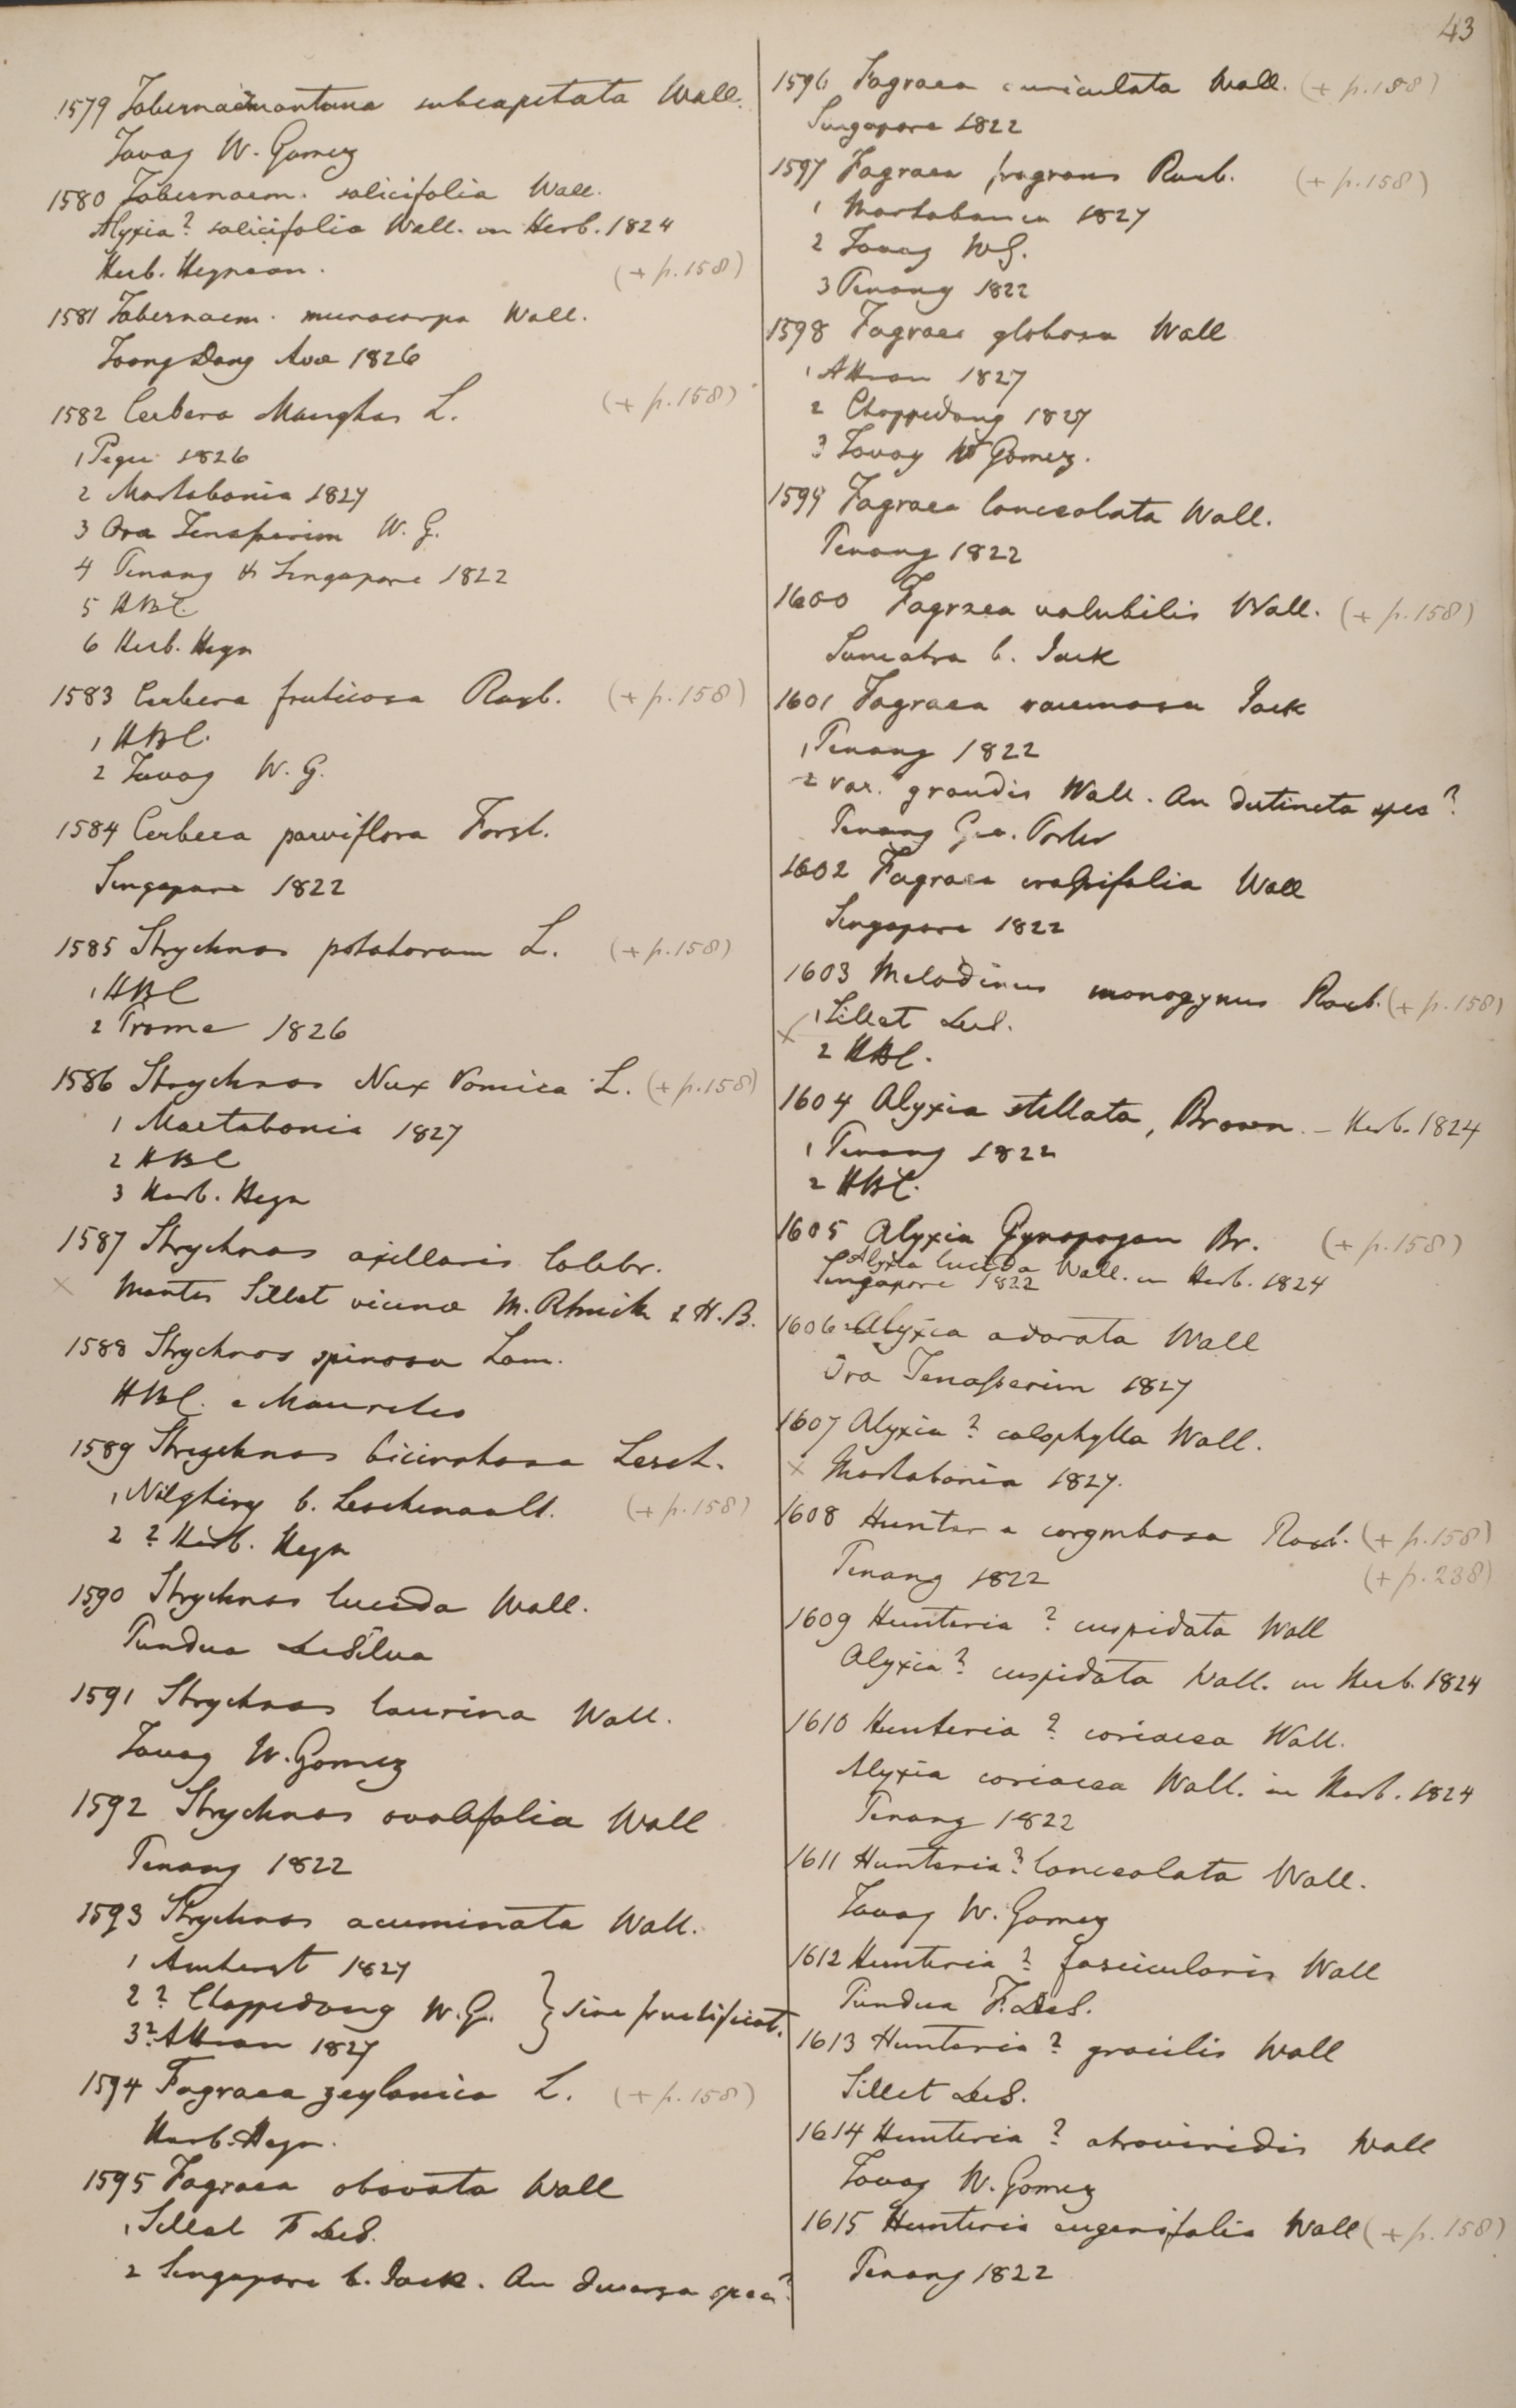 43
1579 Tabernaemontana subcapitata Wall.
Tavoy W. Gomez
1580 Tabernaem. salicifolia Wall.
Alyxia? salicifolia Wall. in Herb. 1824
Herb. Heynean. (+ p.158)
1581 Tabernaem. microcarpa Wall.
Toong Dong Ava 1826
1582 Cerbera Manghas L. (+ p.158)
1 Pegu 1826
2 Martabania 1827
3 Ora Tenasserim W. G.
4 Penang & Singapore 1822
5 HBC
6 Herb. Heyn
1583 Cerbera fruticosa Roxb. (+ p.158)
1 HBC.
2 Tavoy W. G.
1584 Cerbera parviflora Forst.
Singapore 1822
1585 Strychnos potatorum L. (+ p.158)
1 HBC
2 Prome 1826
1586 Strychnos Nux Vomica L. (+ p.158)
1 Martabania 1827
2 HBC
3 Herb. Heyn
1587 Strychnos axillaris Colebr.
x Montes Sillet vicinae M.R. Smith 2 H.B.
1588 Strychnos spinosa Lam.
HBC. e Mauritio
1589 Strychnos bicirrhosa Lesch.
1 Nilghiry b. Leschenault. (+ p.158)
2 ? Herb. Heyn
1590 Strychnos lucida Wall.
Pundua DeSilva
1591 Strychnos laurina Wall.
Tavoy W. Gomez
1592 Strychnos ovalifolia Wall
Penang 1822
1593 Strychnos acuminata Wall.
1 Amherst 1827
2 ? Chappedong W.G. } sine fructificat.
3? Attran 1827
1594 Fagraea zeylanica L. (+ p.158)
Herb. Heyn.
1595 Fagraea obovata Wall
1 Sillet F DeS.
2 Singapore b. Jack. An diversa spec?
1596 Fagraea auriculata Wall. (+ p.158)
Singapore 1822
1597 Fagraea fragrans Roxb. (+ p.158)
1 Martabania 1827
2 Tavoy WG.
3 Penang 1822
1598 Fagraea globosa Wall
1 Attran 1827
2 Chappedong 1827
3 Tavoy W Gomez.
1599 Fagraea lanceolata Wall.
Penang 1822
1600 Fagraea volubilis Wall. (+ p.158)
Sumatra b. Jack
1601 Fagraea racemosa Jack
1 Penang 1822
2 var. grandis Wall. An distincta spec?
Penang Geo. Porter
1602 Fagraea crassifolia Wall
Singapore 1822
1603 Melodinus monogynus Roxb. (+ p.158)
1 Sillet DeS.
x 2 HBC.
1604 Alyxia stellata, Brown. – Herb. 1824
1 Penang 1822
2 HBC.
1605 Alyxia Gynopogon Br. (+ p.158)
Alyxia lucida Wall. in Herb. 1824
Singapore 1822
1606 Alyxia odorata Wall
Ora Tenasserim 1827
1607 Alyxia ? calophylla Wall.
x Martabania 1827.
1608 Hunteria corymbosa Roxb. (+ p.158)
Penang 1822 (+ p.238)
1609 Hunteria ? cuspidata Wall
Alyxia? cuspidata Wall. in Herb. 1824
1610 Hunteria ? coriacea Wall.
Alyxia coriacea Wall. in Herb. 1824
Penang 1822
1611 Hunteria? lanceolata Wall.
Tavoy W. Gomez
1612 Hunteria ? fascicularis Wall
Pundua F. DeS.
1613 Hunteria ? gracilis Wall
Sillet DeS.
1614 Hunteria ? atroviridis Wall
Tavoy W. Gomez
1615 Hunteria eugenifolia Wall (+ p.158)
Penang 1822